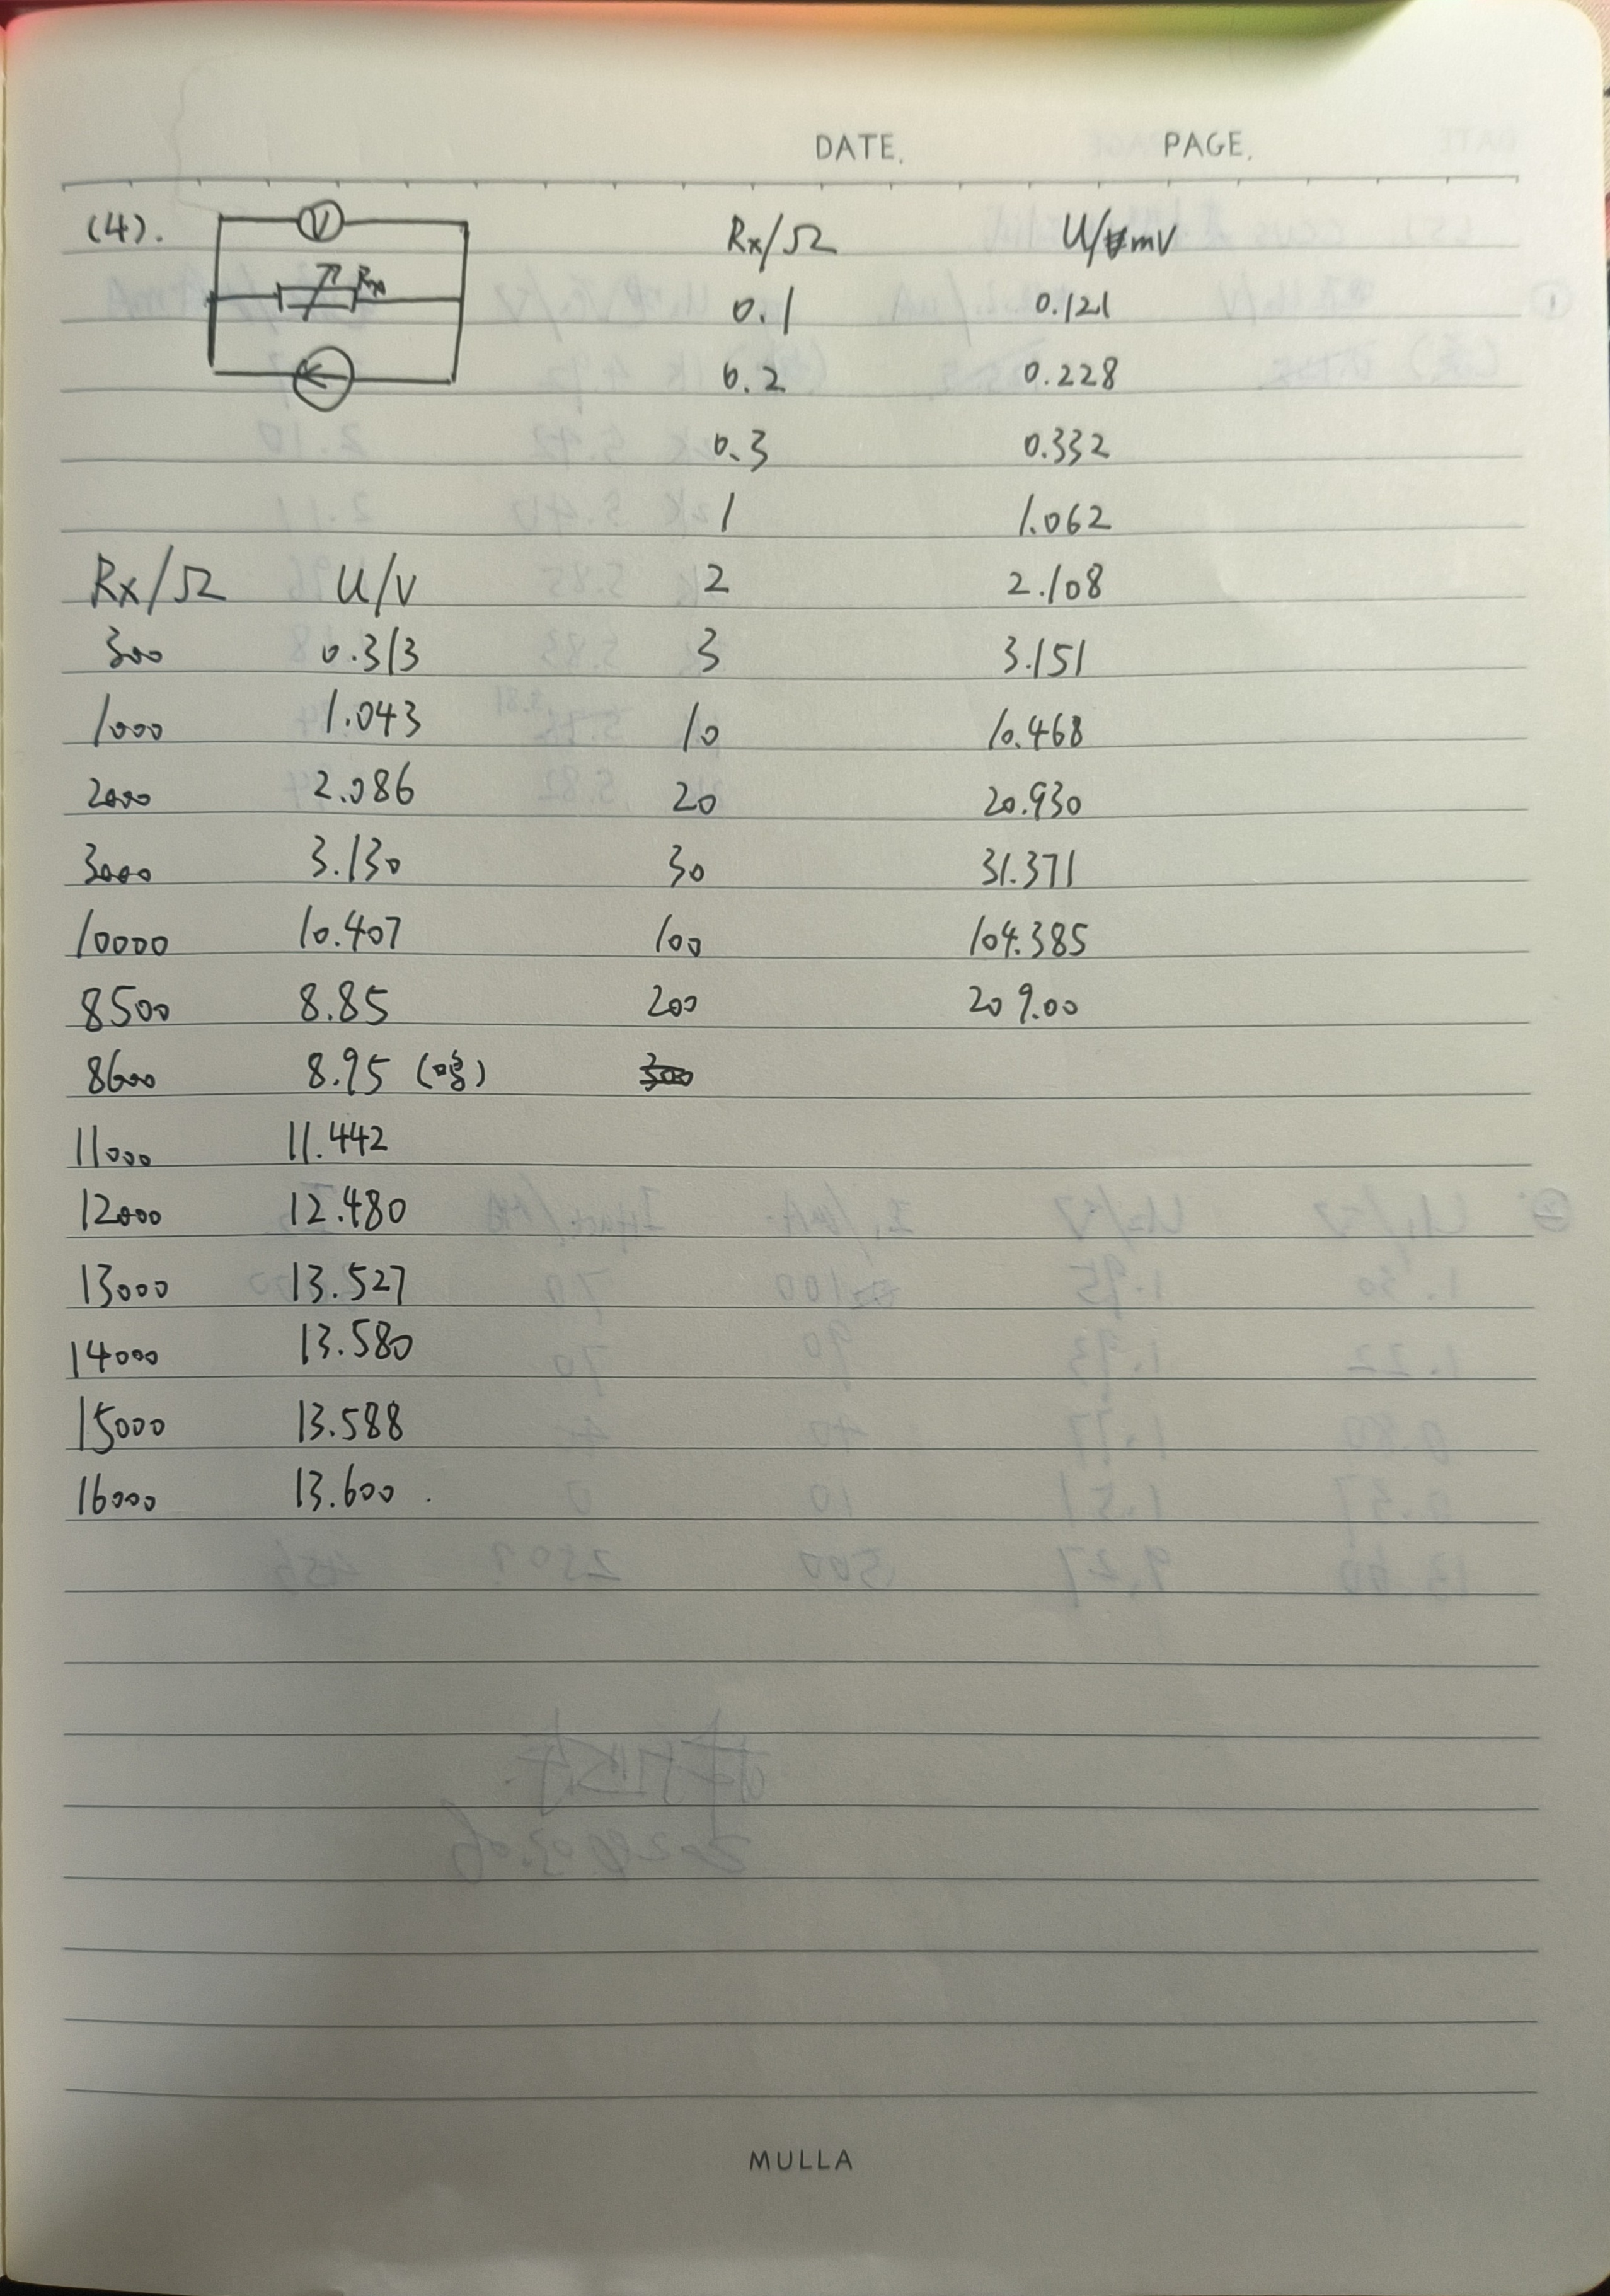 DATE. PAGE.
(4). V Rx
Rx/Ω U/mV
0.1 0.121
0.2 0.228
0.3 0.332
1 1.062
2 2.108
3 3.151
10 10.468
20 20.930
30 31.371
100 104.385
200 209.00
300
Rx/Ω U/V
300 0.313
1000 1.043
2000 2.086
3000 3.130
10000 10.407
8500 8.85
8600 8.95
11000 11.442
12000 12.480
13000 13.527
14000 13.580
15000 13.588
16000 13.600
MULLA